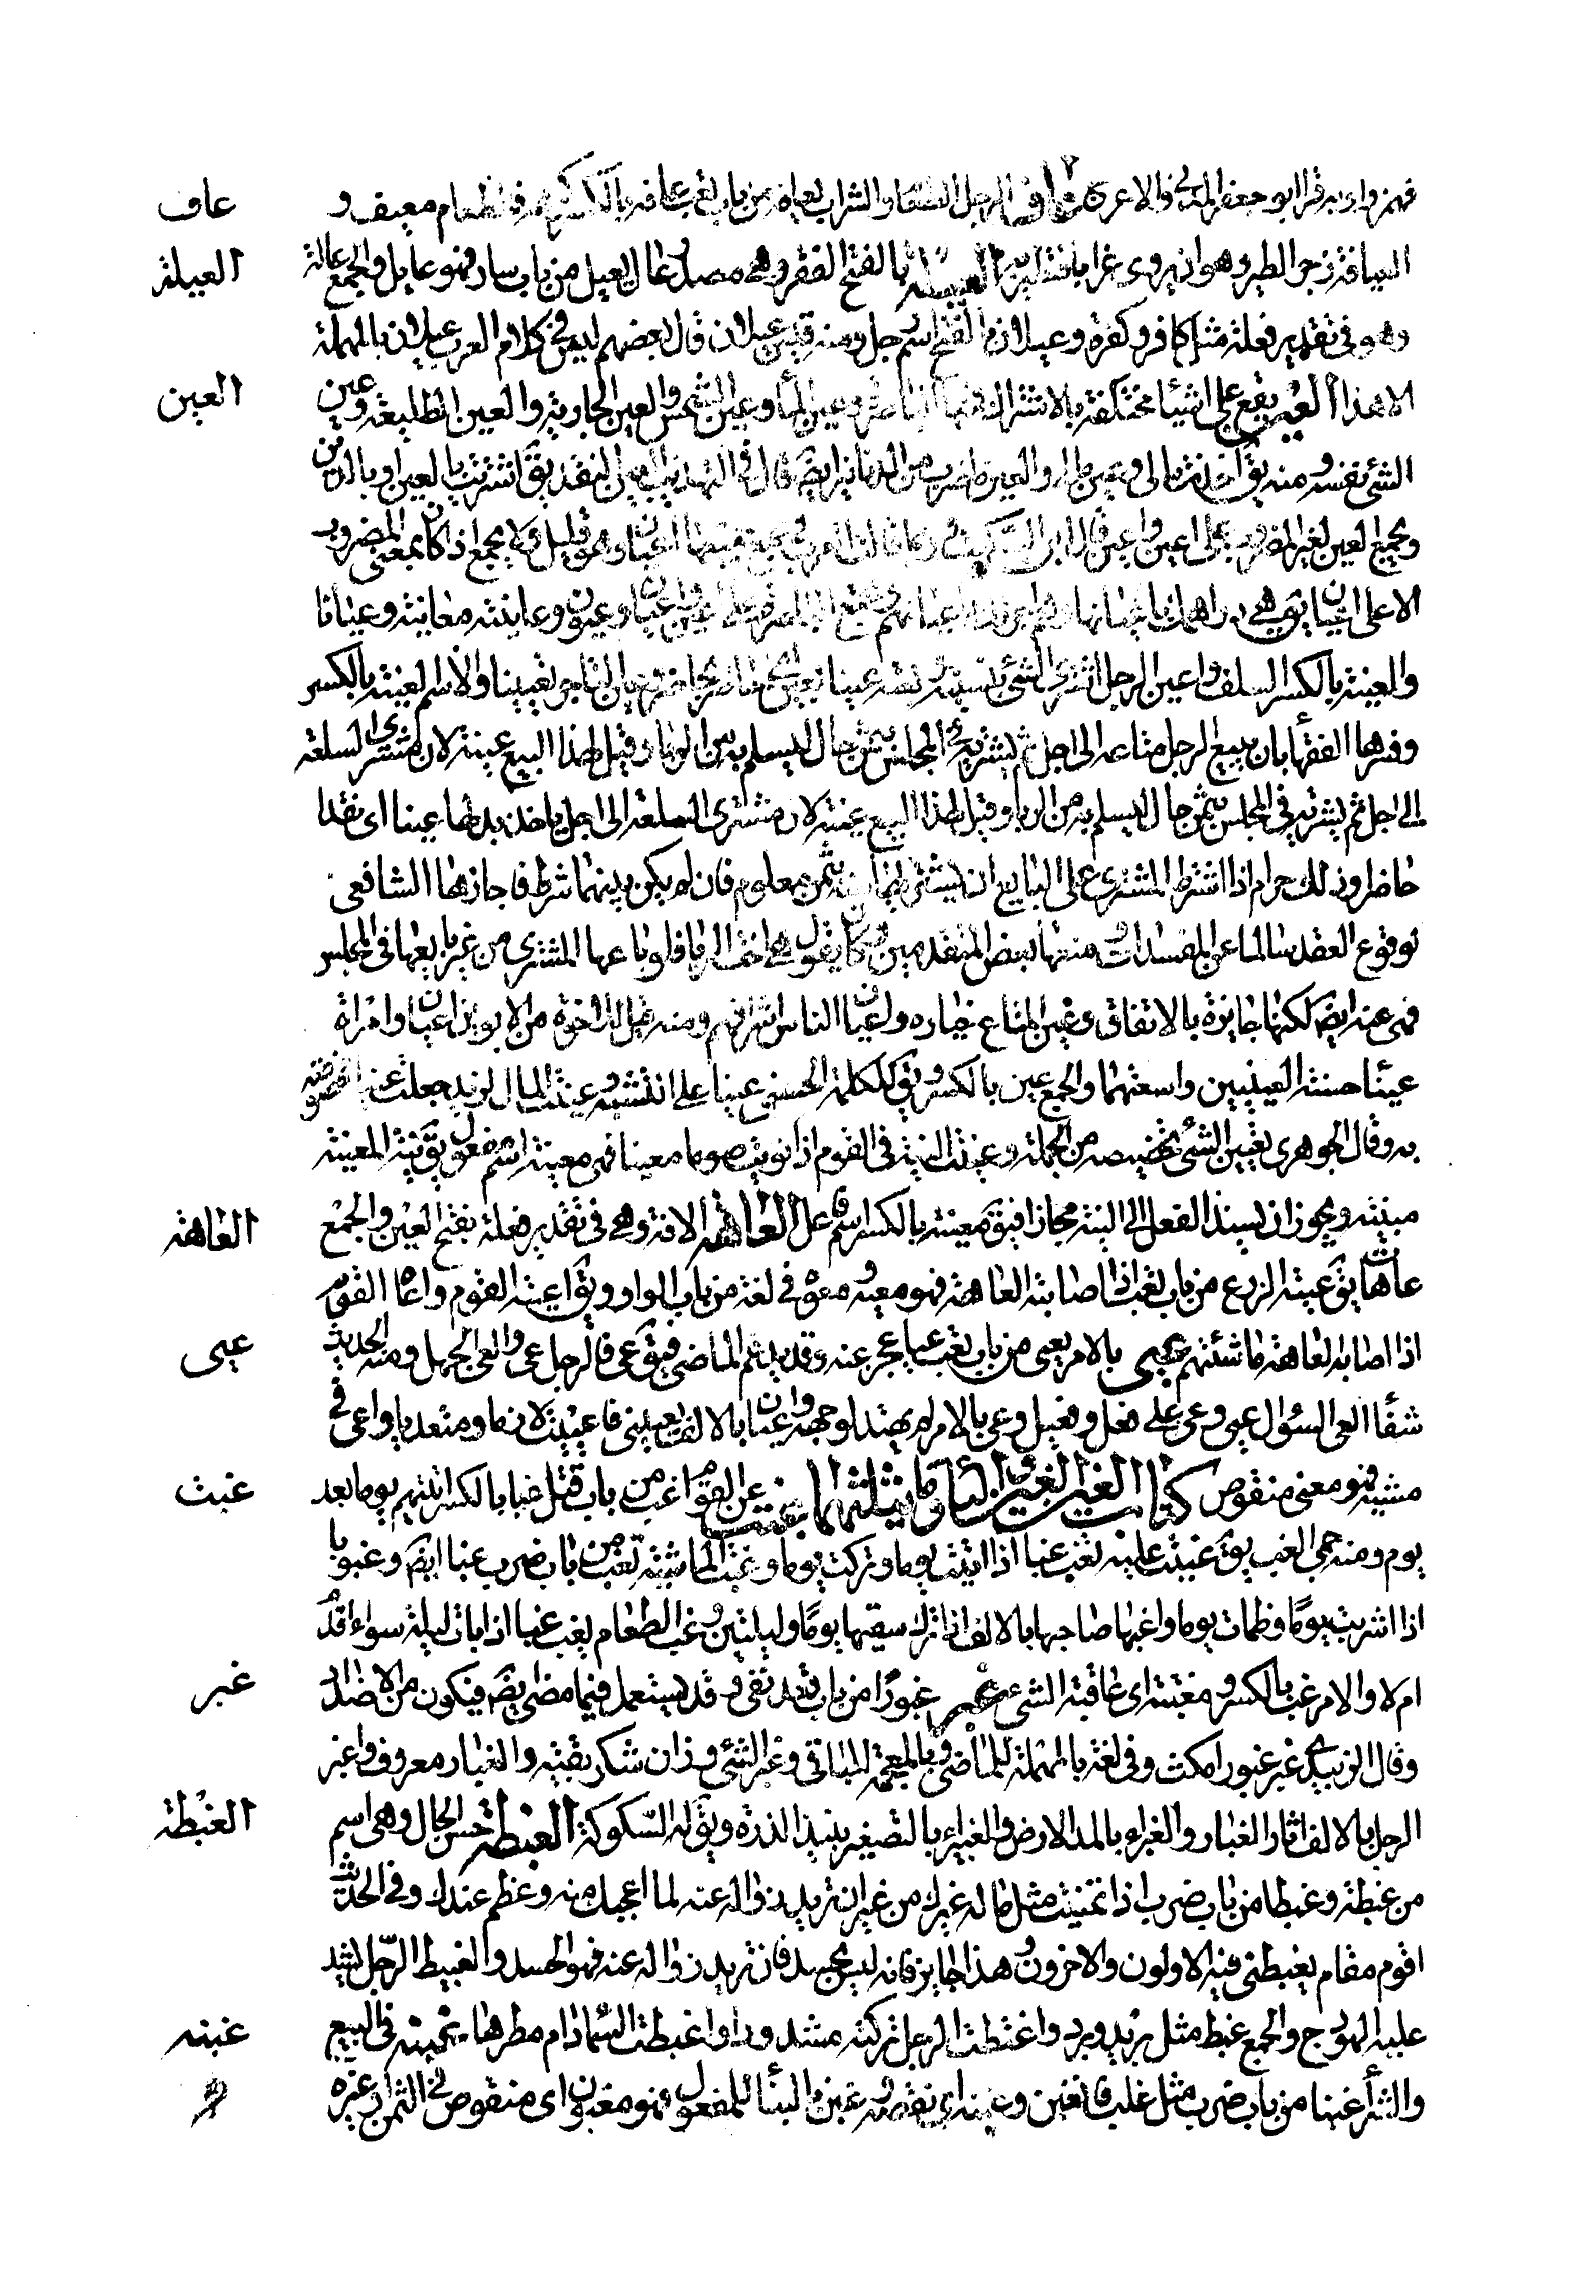 فهمز وابو به قرا ابو جعفر المدني والاعرج عاف الرجل الطعام والشراب يعافه من باب تعب عيافة بالكسر كرهه فالطعام معيف و
عاف
العيافة زجر الطير وهو ان يرى غرابا فيتطير به العيلة بالفتح الفقر وهي مصدر عال يعيل من باب سار فهو عايل والجمع عالة
العيلة
وهو في تقدير فعلة مثل كافر وكفرة وعيلان بالفتح اسم رجل ومنه قيس عيلان قال بعضهم ليس في كلام العرب عيلان بالمهملة
الا هذا العين يقع على اشيا مختلفة بالاشتراك فمنها الباصرة وعين الما وعين الشمس والعين الجارية والعين الطليعة وعين
العين
الشئ نفسه ومنه يق اخذت مالى بعينه والعين ما ضرب من الدنانير ايضا قال في التهذيب العين النقد يق اشتريت بالعين او بالدين
ويجمع العين لغير المضروب على اعين وعيون قال ابن السكيت وربما قالت العرب في جمعها اعيان وهو قليل ولا يجمع اذا كان بمعنى المضروب
الا على اعيان يق هي دراهمك باعيانها وهم اخوتك باعيانهم وتجمع الباصرة على اعين واعيان وعيون وعاينته معاينة وعيانا
والعينة بالكسر السلف واعين الرجل اشترى الشئ بنسيئة وبعته عينا بعين اي حاضرا بحاضر وعين التاجر تعيينا والاسم العينة بالكسر
وفسرها الفقهأ بان يبيع الرجل متاعه الى اجل ثم يشتريه في المجلس بثمن حال ليسلم به من الربا وقيل لهذا البيع عينة لان مشترى السلعة
الى اجل ثم يشتريه في المجلس بثمن حال ليسلم به من الربا وقيل لهذا البيع عينة لان مشترى السلعة الى اجل ياخذ بدلها عينا اى نقدا
حاضرا وذلك حرام اذا اشترط المشترى على البايع ان يشتريها منه بثمن معلوم فان لم يكن بينهما شرط فاجازها الشافعى
لوقوع العقد سالما عن المفسدات ومنعها بعض المتقدمين وكان يقول هي اخت الربا فلو باعها المشترى من غير بايعها في المجلس
فهى عينة ايضا لكنها جايزة بالاتفاق وعين المتاع خياره واعيان الناس اشرافهم ومنه قيل للاخوة من الابوين اعيان وامراة
عينا حسنة العينين واسعتهما والجمع عين بالكسر ويق للكلمة الحسنى عينا على التشبيه وعينت المال لزيد جعلته عينا مخصوصة
به وقال الجوهرى تعيين الشئ تخصيصه من الجملة وعينت النية في الصوم اذا نويت صوما معينا فهى معينة اسم مفعول يق نية معينة
مبيتة ويجوز ان يسند الفعل الى النية مجازا فيق معينة بالكسر اسم فاعل العاهة الافة وهي في تقدير فعلة بفتح العين والجمع
العاهة
عاهات يق عيه الزرع من باب تعب اذا اصابته العاهة فهو معيه ومعوه في لغة من باب الواو ويق اعيه القوم واعاه القوم
اذا اصابت العاهة ماشيتهم عيى بالامر يعيى من باب تعب عيا عجز عنه وقد يدغم الماضى فيق عى فالرجل عى والعى الجهل ومنه الحديث
عيى
شفأ العى السؤال عيى وعى على فعل وفعيل وعى بالامر لم يهتد لوجهه واعيانى بالالف يعيينى فاعييت لازما ومتعديا واعى في
مشيه فهو معى منقوص كتاب الغين الغين والبأ وما يثلثهما غبت عن القوم اغب من باب قتل غبا بالكسر اتيتهم يوما بعد
غبت
يوم ومنه حمى الغب يق غبت عليه تغب غبا اذا اتت يوما وتركت يوما وغبت الماشية تغب من باب ضرب غبا ايضا وغبوبا
اذا شربت يوما وظمات يوما واغبها صاحبها بالالف اذا ترك سقيها يوما وليلتين وغب الطعام يغب غبا اذا بات ليلة سواء اقدم
ام لا والامر غب بالكسر ومغبته اى عاقبته الشئ غبر غبورا من باب قعد بقى وقد يستعمل فيما مضى ايضا فيكون من الاضداد
غبر
وقال الزبيدى غبر غبورا مكث وفي لغة بالمهملة للماضى وبالمعجمة للباقى وغبر الشئ وزان سكر بقيته والغبار معروف واغبر
الرجل بالالف اثار الغبار والغبراء بالمد الارض والغبيراء بالتصغير نبيذ الذرة ويق له السكركة الغبطة حسن الحال وهى اسم
الغبطة
من غبطة وغبطا من باب ضرب اذا تمنيت مثل ما له غيرك من غير ان تريد زواله عنه لما اعجبك منه وعظم عندك وفى الحديث
اقوم مقام يغبطنى فيه الاولون والاخرون وهذا جايز فانه ليس بحسد فان تريد زواله عنه فهو الحسد والغبيط الرحل يشد
عليه الهودج والجمع غبط مثل بريد وبرد واغبطت الرحل تركته مشدودا واغبطت السما دام مطرها غبنه في البيع
غبنه
والشرأ غبنا من باب ضرب مثل غلب فانغبن وغبنه اى نقصه وغبن بالبنأ للمفعول فهو مغبون اى منقوص في الثمن او غيره